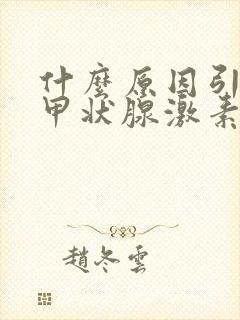 什麼原因引
甲状腺激素
趙冬雲